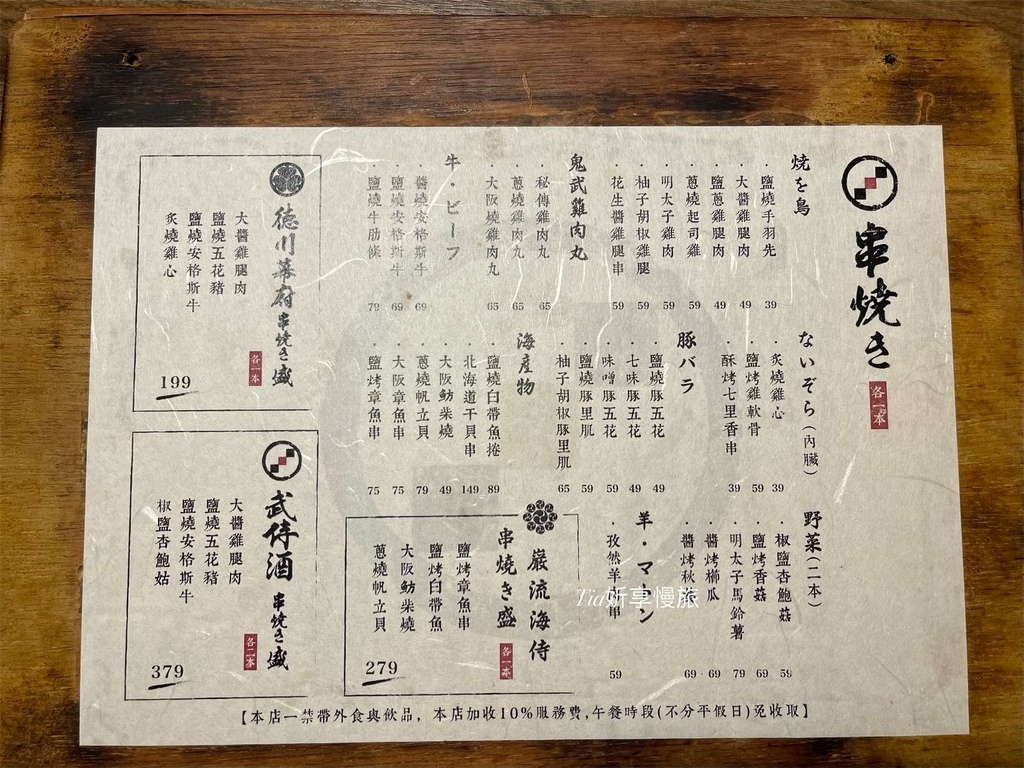 串焼き
各一本
焼き鳥
・鹽燒手羽先 39
・大醬雞腿肉 49
・鹽蔥雞腿肉 49
・蔥燒起司雞 59
・明太子雞肉 59
・柚子胡椒雞腿 59
・花生醬雞腿串 59
鬼武雞肉丸
・秘傳雞肉丸 65
・蔥燒雞肉丸 65
・大阪燒雞肉丸 65
牛・ビーフ
・醬燒安格斯牛 69
・鹽燒安格斯牛 69
・鹽燒牛肋條 79
ないぞう(內臟)
・炙燒雞心 39
・鹽烤雞軟骨 59
・酥烤七里香串 39
豚バラ
・鹽燒豚五花 49
・七味豚五花 49
・味噌豚五花 59
・鹽燒豚里肌 59
・柚子胡椒豚里肌 65
海産物
・鹽燒白帶魚捲 89
・北海道干貝串 149
・大阪魴柴燒 49
・蔥燒帆立貝 79
・大阪章魚串 75
・鹽烤章魚串 75
野菜(二本)
・椒鹽杏鮑菇 59
・鹽烤香菇 69
・明太子馬鈴薯 79
・醬烤櫛瓜 69
・醬烤秋葵 69
羊・マトン
・孜然羊肉串 59
巖流海侍
串燒き盛
各一本
鹽烤章魚串
鹽烤白帶魚
大阪魴柴燒
蔥燒帆立貝
279
德川幕府串焼き盛
各一本
大醬雞腿肉
鹽燒五花豬
鹽燒安格斯牛
炙燒雞心
199
武侍酒串焼き盛
各二本
大醬雞腿肉
鹽燒五花豬
鹽燒安格斯牛
椒鹽杏鮑菇
379
【本店一禁帶外食與飲品，本店加收10%服務費,午餐時段(不分平假日)免收取】
Tia妡享慢旅